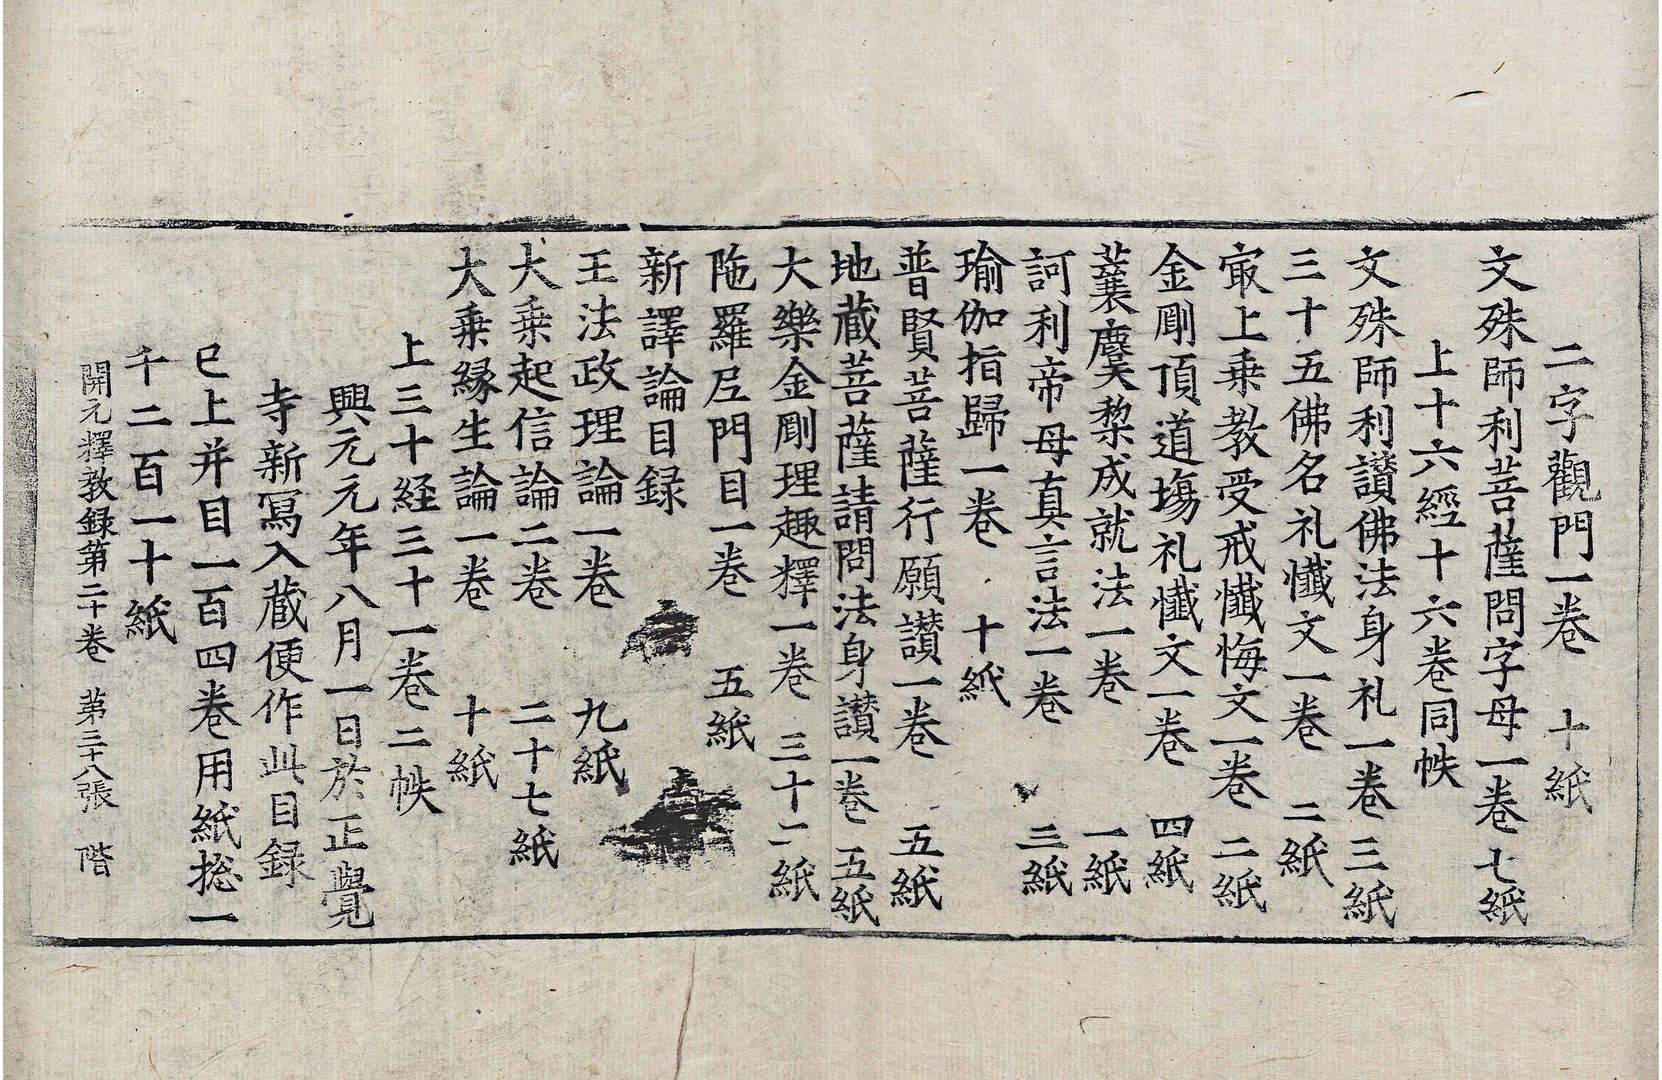 二字觀門一卷　十紙
文殊師利菩薩問字母一卷七紙
上十六經十六卷同帙
文殊師利讃佛法身礼一卷三紙
三十五佛名礼懺文一卷　二紙
㝡上乗教受戒懺悔文一卷　二紙
金剛頂道塲礼懺文一卷　四紙
蘘麌梨成就法一卷　一紙
訶利帝母真言法一卷　三紙
瑜伽指歸一卷　十紙
普賢菩薩行願讃一卷　五紙
地蔵菩薩請問法身讃一卷　五紙
大樂金剛理趣釋一卷　三十二紙
陁羅尼門目一卷　五紙
新譯論目録
王法政理論一卷　九紙
大乗起信論二卷　二十七紙
大乗緣生論一卷　十紙
上三十経三十一卷二帙
興元元年八月一日於正覺
寺新冩入蔵便作此目録
已上并目一百四卷用紙捴一
千二百一十紙
開元釋教録第二十卷　第三十八張　階